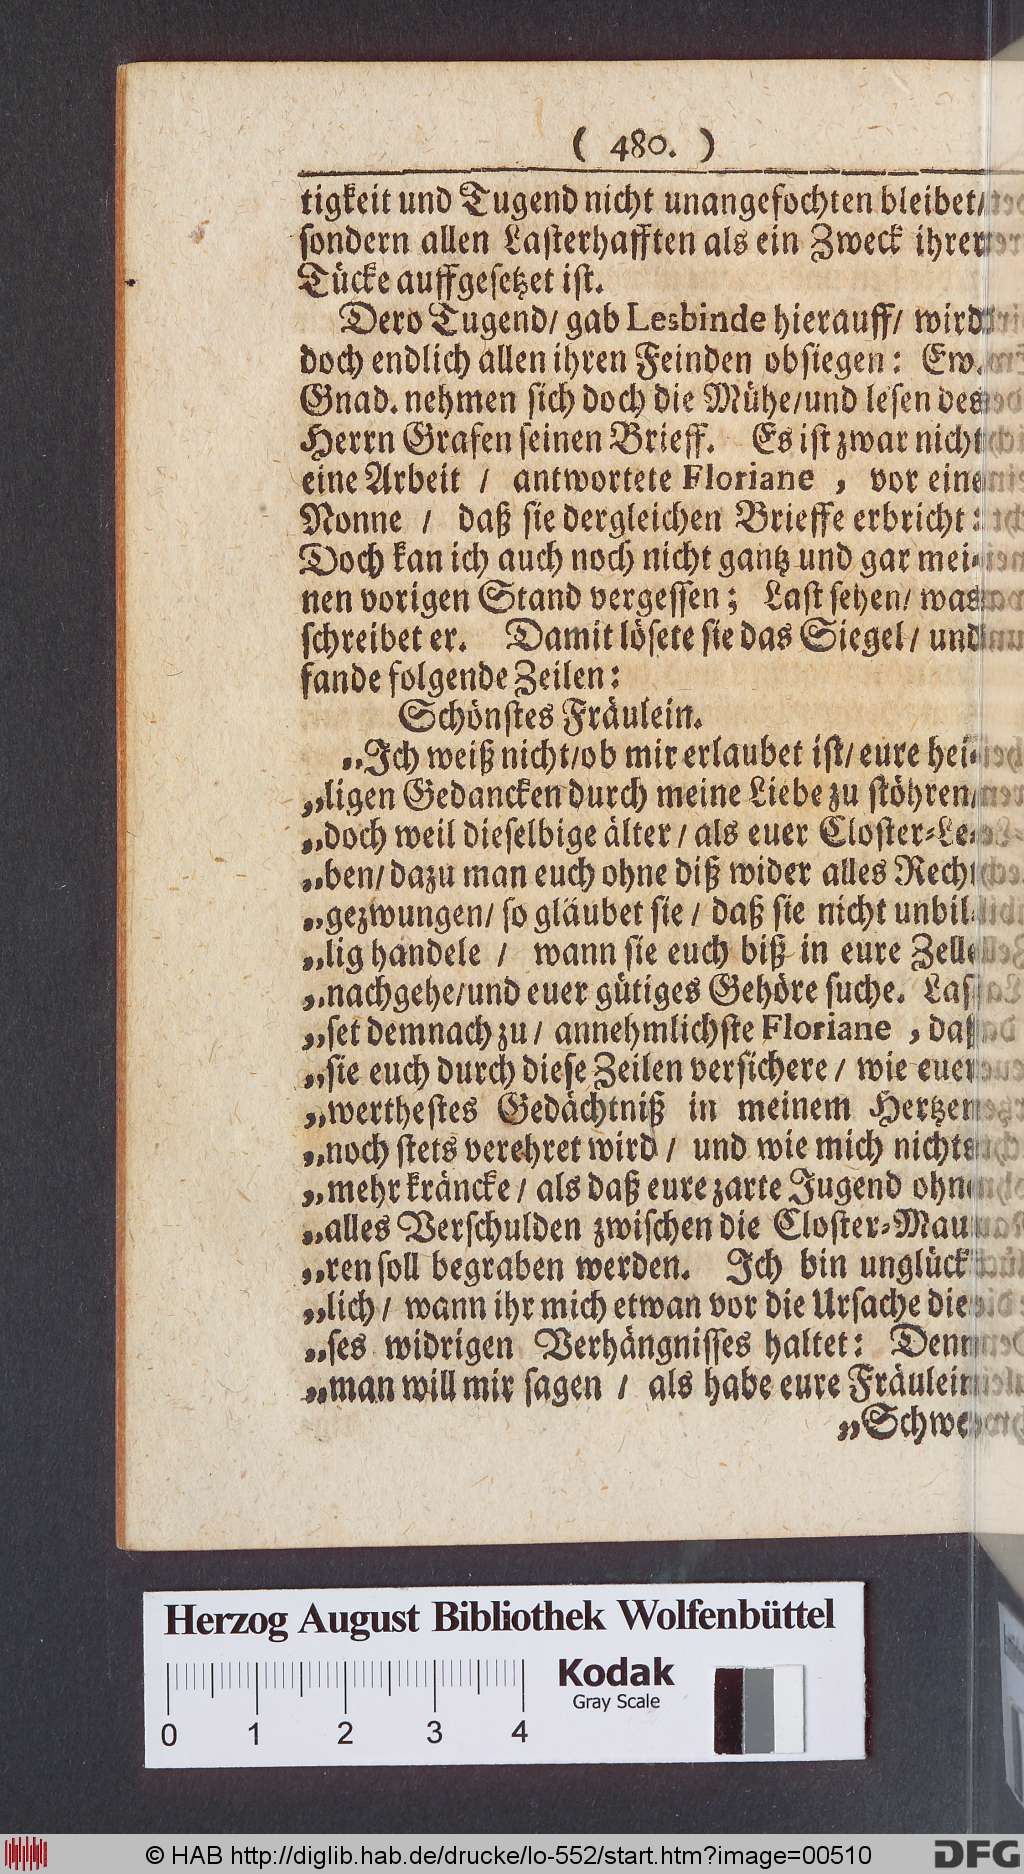 ( 480. )
tigkeit und Tugend nicht unangefochten bleibet/
sondern allen Lasterhafften als ein Zweck ihrer
Tücke auffgesetzet ist.
Dero Tugend/ gab Lesbinde hierauff/ wird
doch endlich allen ihren Feinden obsiegen: Ew.
Gnad. nehmen sich doch die Mühe/und lesen des
Herrn Grafen seinen Brieff. Es ist zwar nicht
eine Arbeit / antwortete Floriane , vor eine
Nonne / daß sie dergleichen Brieffe erbricht:
Doch kan ich auch noch nicht gantz und gar mei-
nen vorigen Stand vergessen; Last sehen/ was
schreibet er. Damit lösete sie das Siegel / und
fande folgende Zeilen:
Schönstes Fräulein.
„Ich weiß nicht/ob mir erlaubet ist/ eure hei-
„ligen Gedancken durch meine Liebe zu stöhren/
„doch weil dieselbige älter / als euer Closter-Le-
„ben/ dazu man euch ohne diß wider alles Recht
„gezwungen/ so gläubet sie / daß sie nicht unbil-
„lig handele / wann sie euch biß in eure Zelle
„nachgehe/und euer gütiges Gehöre suche. Las-
„set demnach zu / annehmlichste Floriane , daß
„sie euch durch diese Zeilen versichere / wie euer
„werthestes Gedächtniß in meinem Hertzen
„noch stets verehret wird / und wie mich nichts
„mehr kräncke / als daß eure zarte Jugend ohn
„alles Verschulden zwischen die Closter-Mau
„ren soll begraben werden. Ich bin unglück
„lich / wann ihr mich etwan vor die Ursache die
„ses widrigen Verhängnisses haltet: Denn
„man will mir sagen / als habe eure Fräulein
„Schwe
Herzog August Bibliothek Wolfenbüttel
Kodak
Gray Scale
0 1 2 3 4
© HAB http://diglib.hab.de/drucke/lo-552/start.htm?image=00510
DFG